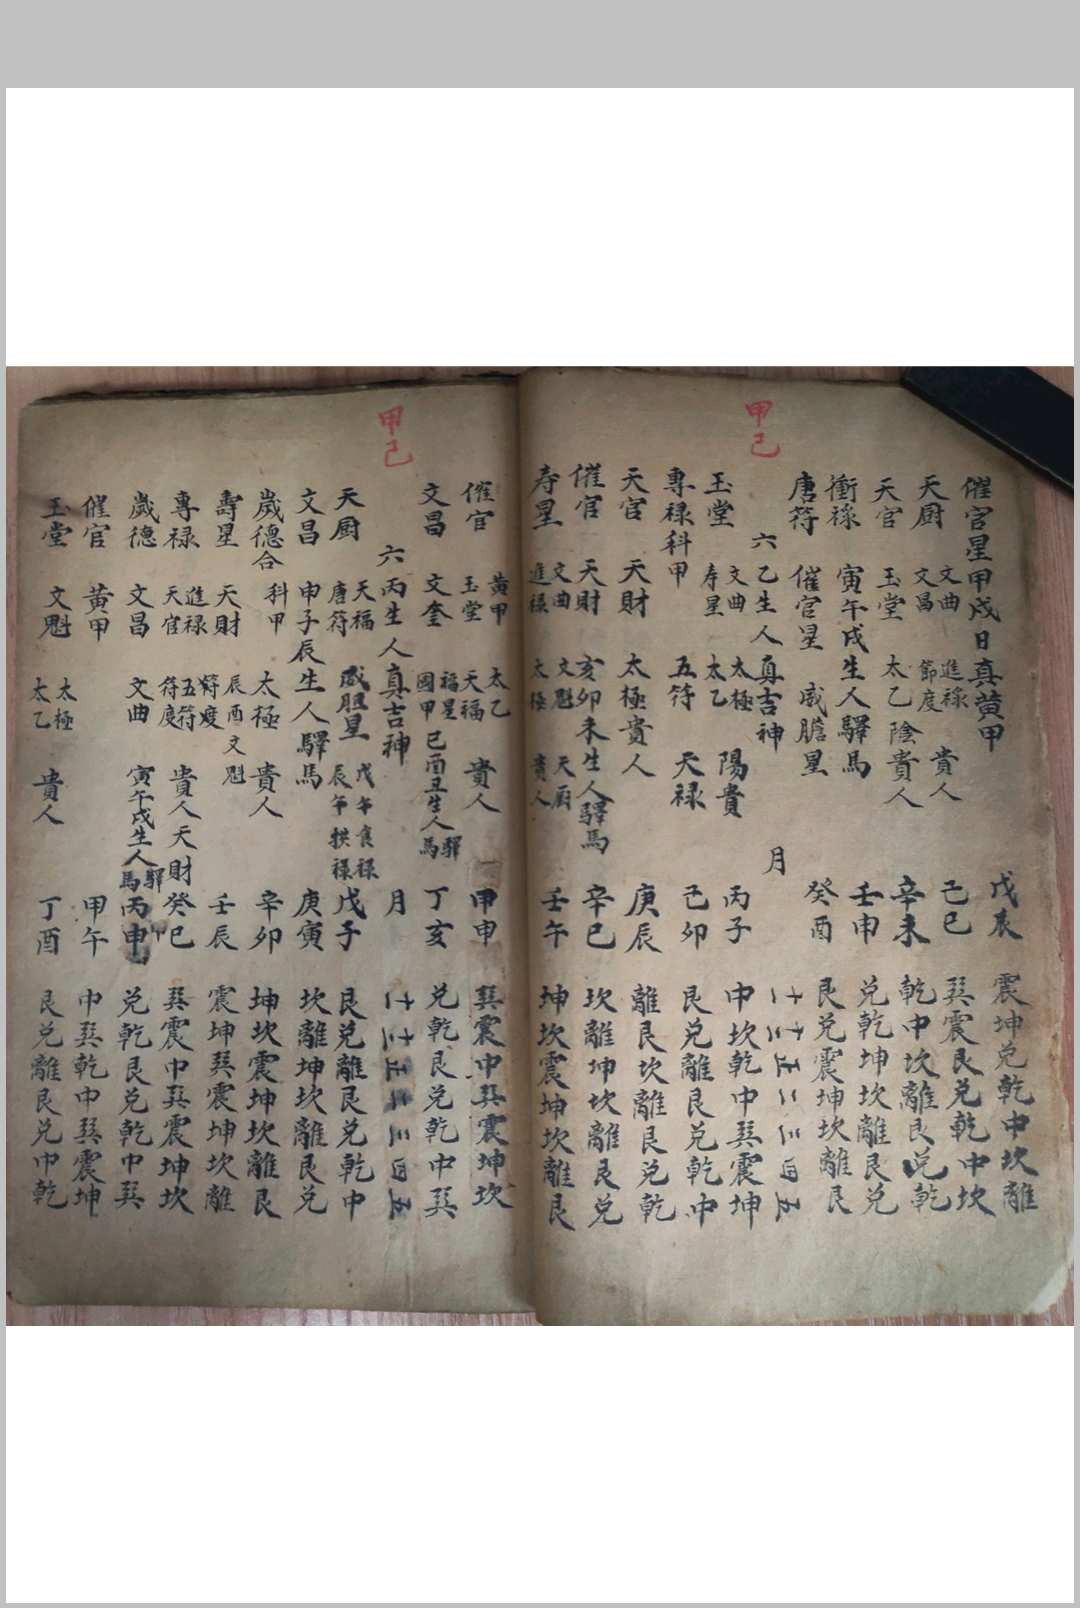 甲己
催官星甲戌日真黃甲 戊辰 震坤兑乾中坎離
天厨 文曲 文昌 進祿 節度 貴人 己巳 巽震艮兑乾中坎
天官 玉堂 太乙 陰貴人 辛未 乾中坎離艮兑乾
衝祿 寅午戌生人驛馬 壬申 兑乾坤坎離艮兑
唐符 催官星 威膽星 癸酉 艮兑震坤坎離艮
六乙生人真吉神 月
玉堂 文曲 寿星 太極 太乙 陽貴 丙子 中坎乾中巽震坤
專祿科甲 五符 天禄 己卯 艮兑離艮兑乾中
天官 天財 太極貴人 庚辰 離艮坎離艮兑乾
催官 天財 亥卯未生人驛馬 辛巳 坎離坤坎離艮兑
寿星 文曲 進祿 文魁 太極 天厨 貴人 壬午 坤坎震坤坎離艮
甲己
催官 黃甲 玉堂 太乙 天福 貴人 甲申 巽震中巽震坤坎
文昌 文奎 福星 國甲 巳酉丑生人驛馬 丁亥 兑乾艮兑乾中巽
六丙生人真吉神 月
天厨 天福 唐符 威胆星 戊午食禄 辰午拱禄 戊子 艮兑離艮兑乾中
文昌 申子辰生人驛馬 庚寅 坎離坤坎離艮兑
歲德合 科甲 太極貴人 辛卯 坤坎震坤坎離艮
壽星 天財 辰酉文魁 壬辰 震坤巽震坤坎離
專禄 進禄 天官 五符 符度 貴人天財 癸巳 巽震中巽震坤坎
歲德 文昌 文曲 寅午戌生人驛馬 丙申 兑乾艮兑乾中巽
催官 黃甲 甲午 中巽乾中巽震坤
玉堂 文魁 太極 太乙 貴人 丁酉 艮兑離艮兑中乾